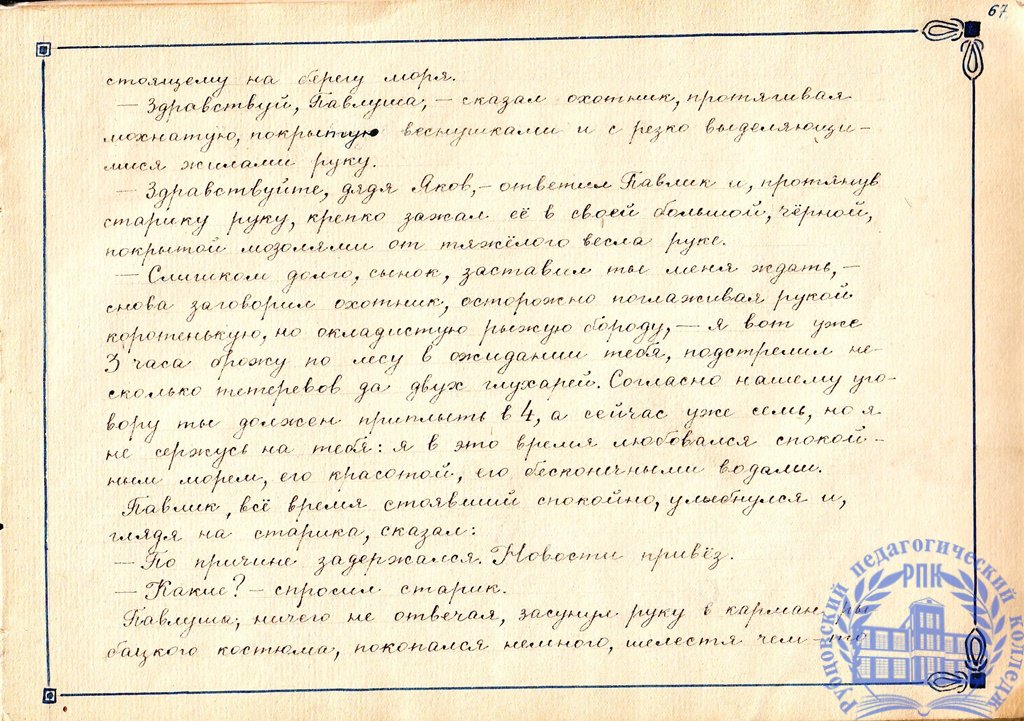 67
стоящему на берегу моря.
— Здравствуй, Павлуша, — сказал охотник, протягивая
мохнатую, покрытую веснушками и с резко выделяющи-
мися жилами руку.
— Здравствуйте, дядя Яков, — ответил Павлик и, протянув
старику руку, крепко зажал её в своей большой, чёрной,
покрытой мозолями от тяжёлого весла руке.
— Слишком долго, сынок, заставил ты меня ждать, —
снова заговорил охотник, осторожно поглаживая рукой
коротенькую, но окладистую рыжую бороду, — я вот уже
3 часа брожу по лесу в ожидании тебя, подстрелил не-
сколько тетеревов да двух глухарей. Согласно нашему уго-
вору ты должен приплыть в 4, а сейчас уже семь, но я
не сержусь на тебя: я в это время любовался спокой-
ным морем, его красотой, его бесконечными водами.
Павлик, всё время стоявший спокойно, улыбнулся и,
глядя на старика, сказал:
— По причине задержался. Новости привёз.
— Какие? — спросил старик.
Павлуша, ничего не отвечая, засунул руку в карман ры
бацкого костюма, покопался немного, шелестя чем-то
Рубцовский педагогический колледж
РПК